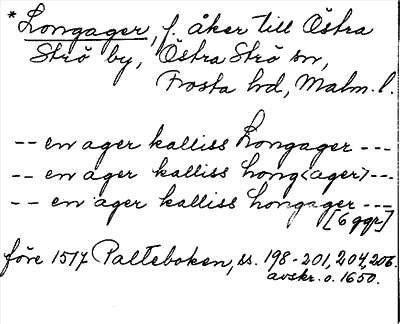 *Longager, f. åker till Östra
Strö by, Östra Strö sn,
Frosta hd, Malm. l.
-- en ager kalliss Longager ---
-- en ager kalliss hong<ager>---
-- en ager kalliss hongager ---
[6 ggr]
före 1517 Palteboken, ss. 198-201, 204, 206.
avskr. o. 1650.